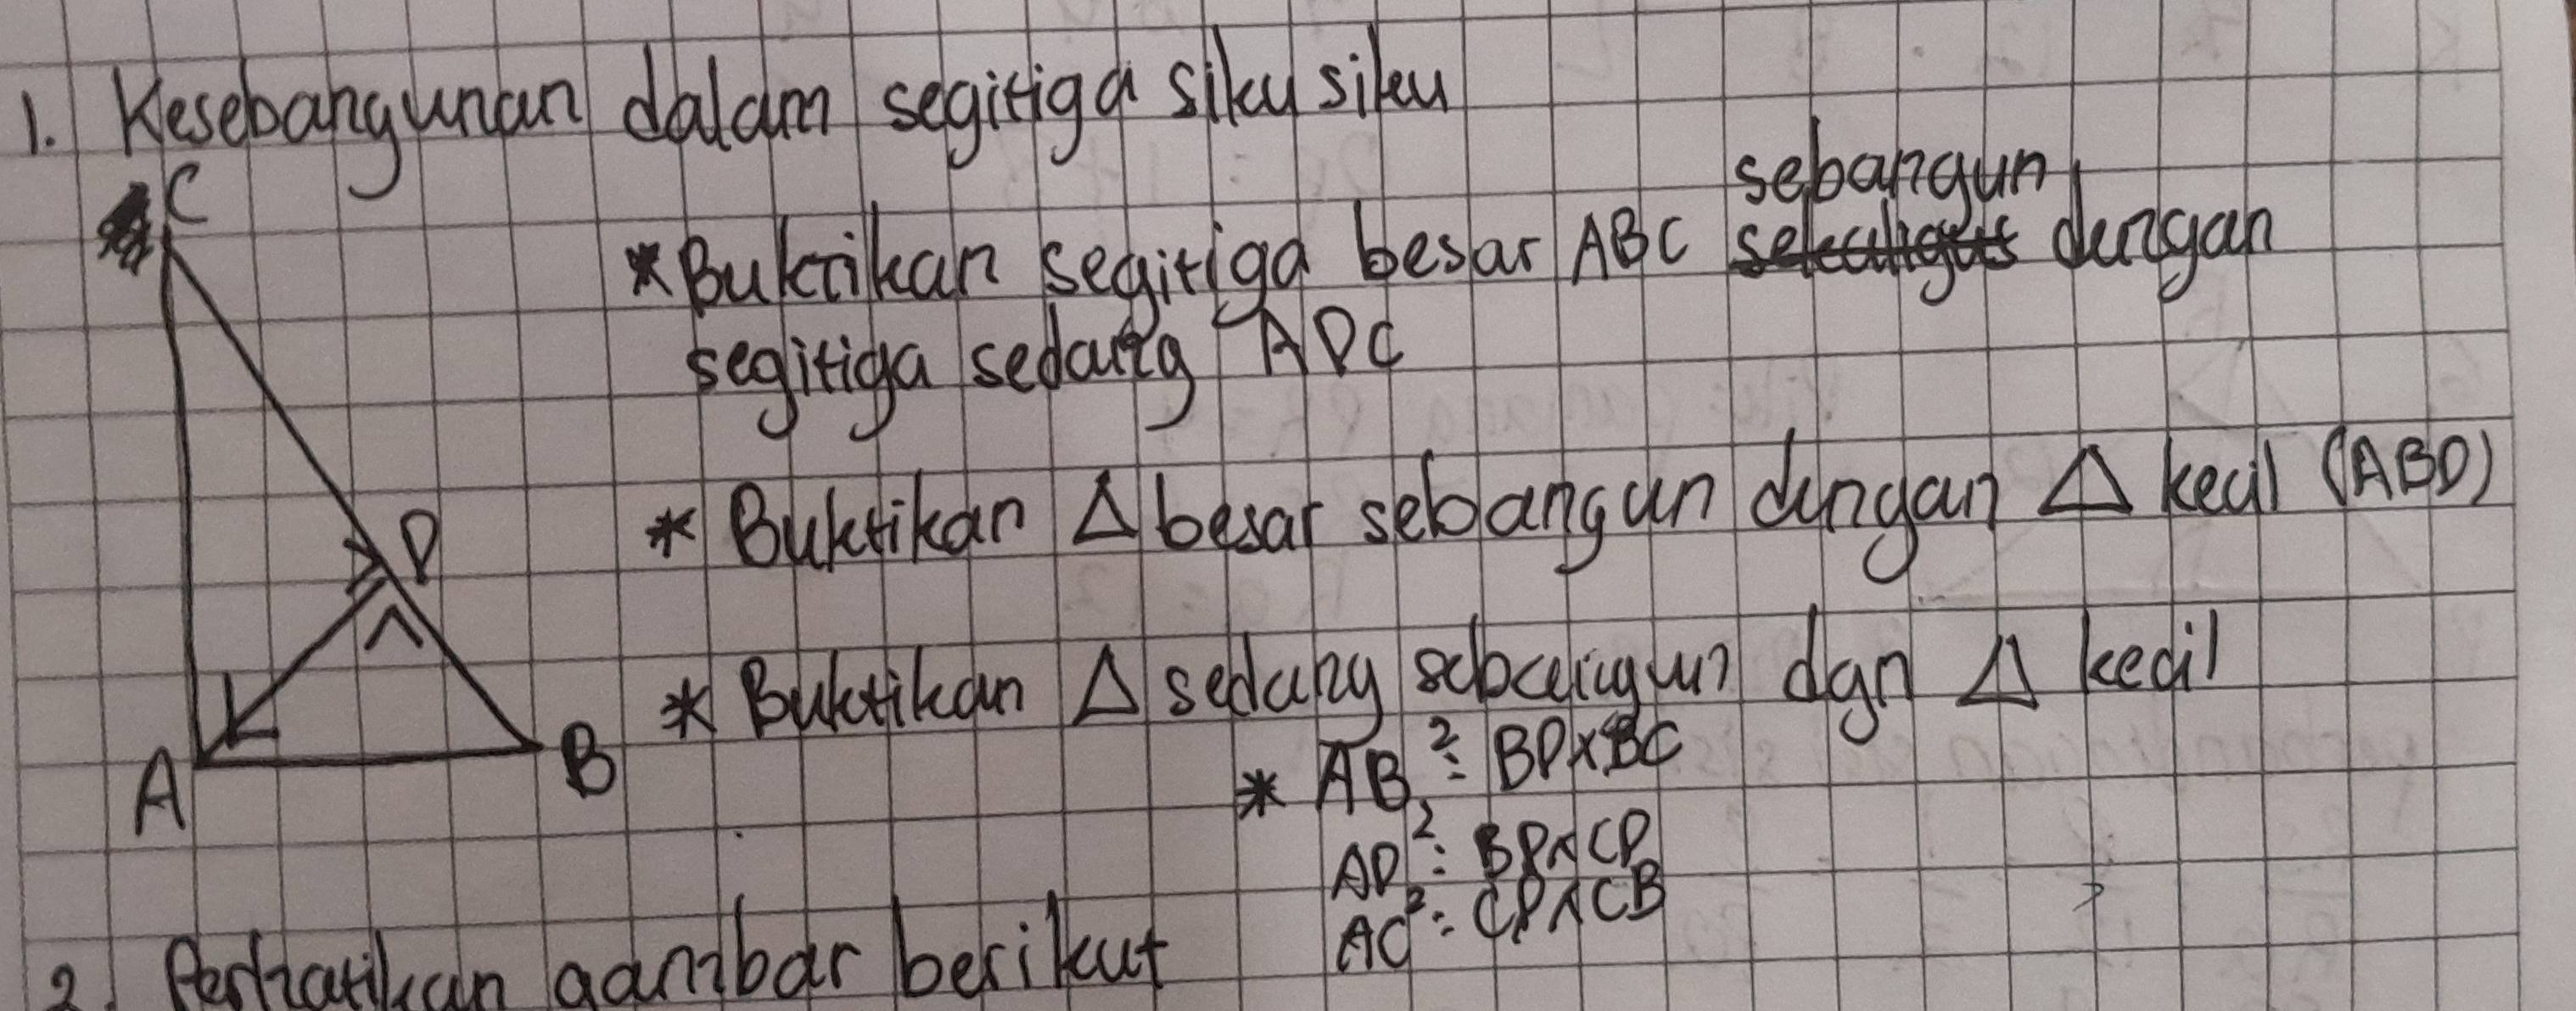 1. Kesebangunan dalam segitiga siku siku
C
sebangun
*Buktikan segitiga besar ABC dengan
segitiga sedang ADC
D
* Buktikan Δ besar sebangun dengan Δ kecil (ABD)
* Buktikan Δ sedang sebangun dgn Δ kecil
A
B
* AB² = BD×BC
AD² = BD×CD
AC² = CD×CB
2. Perhatikan gambar berikut